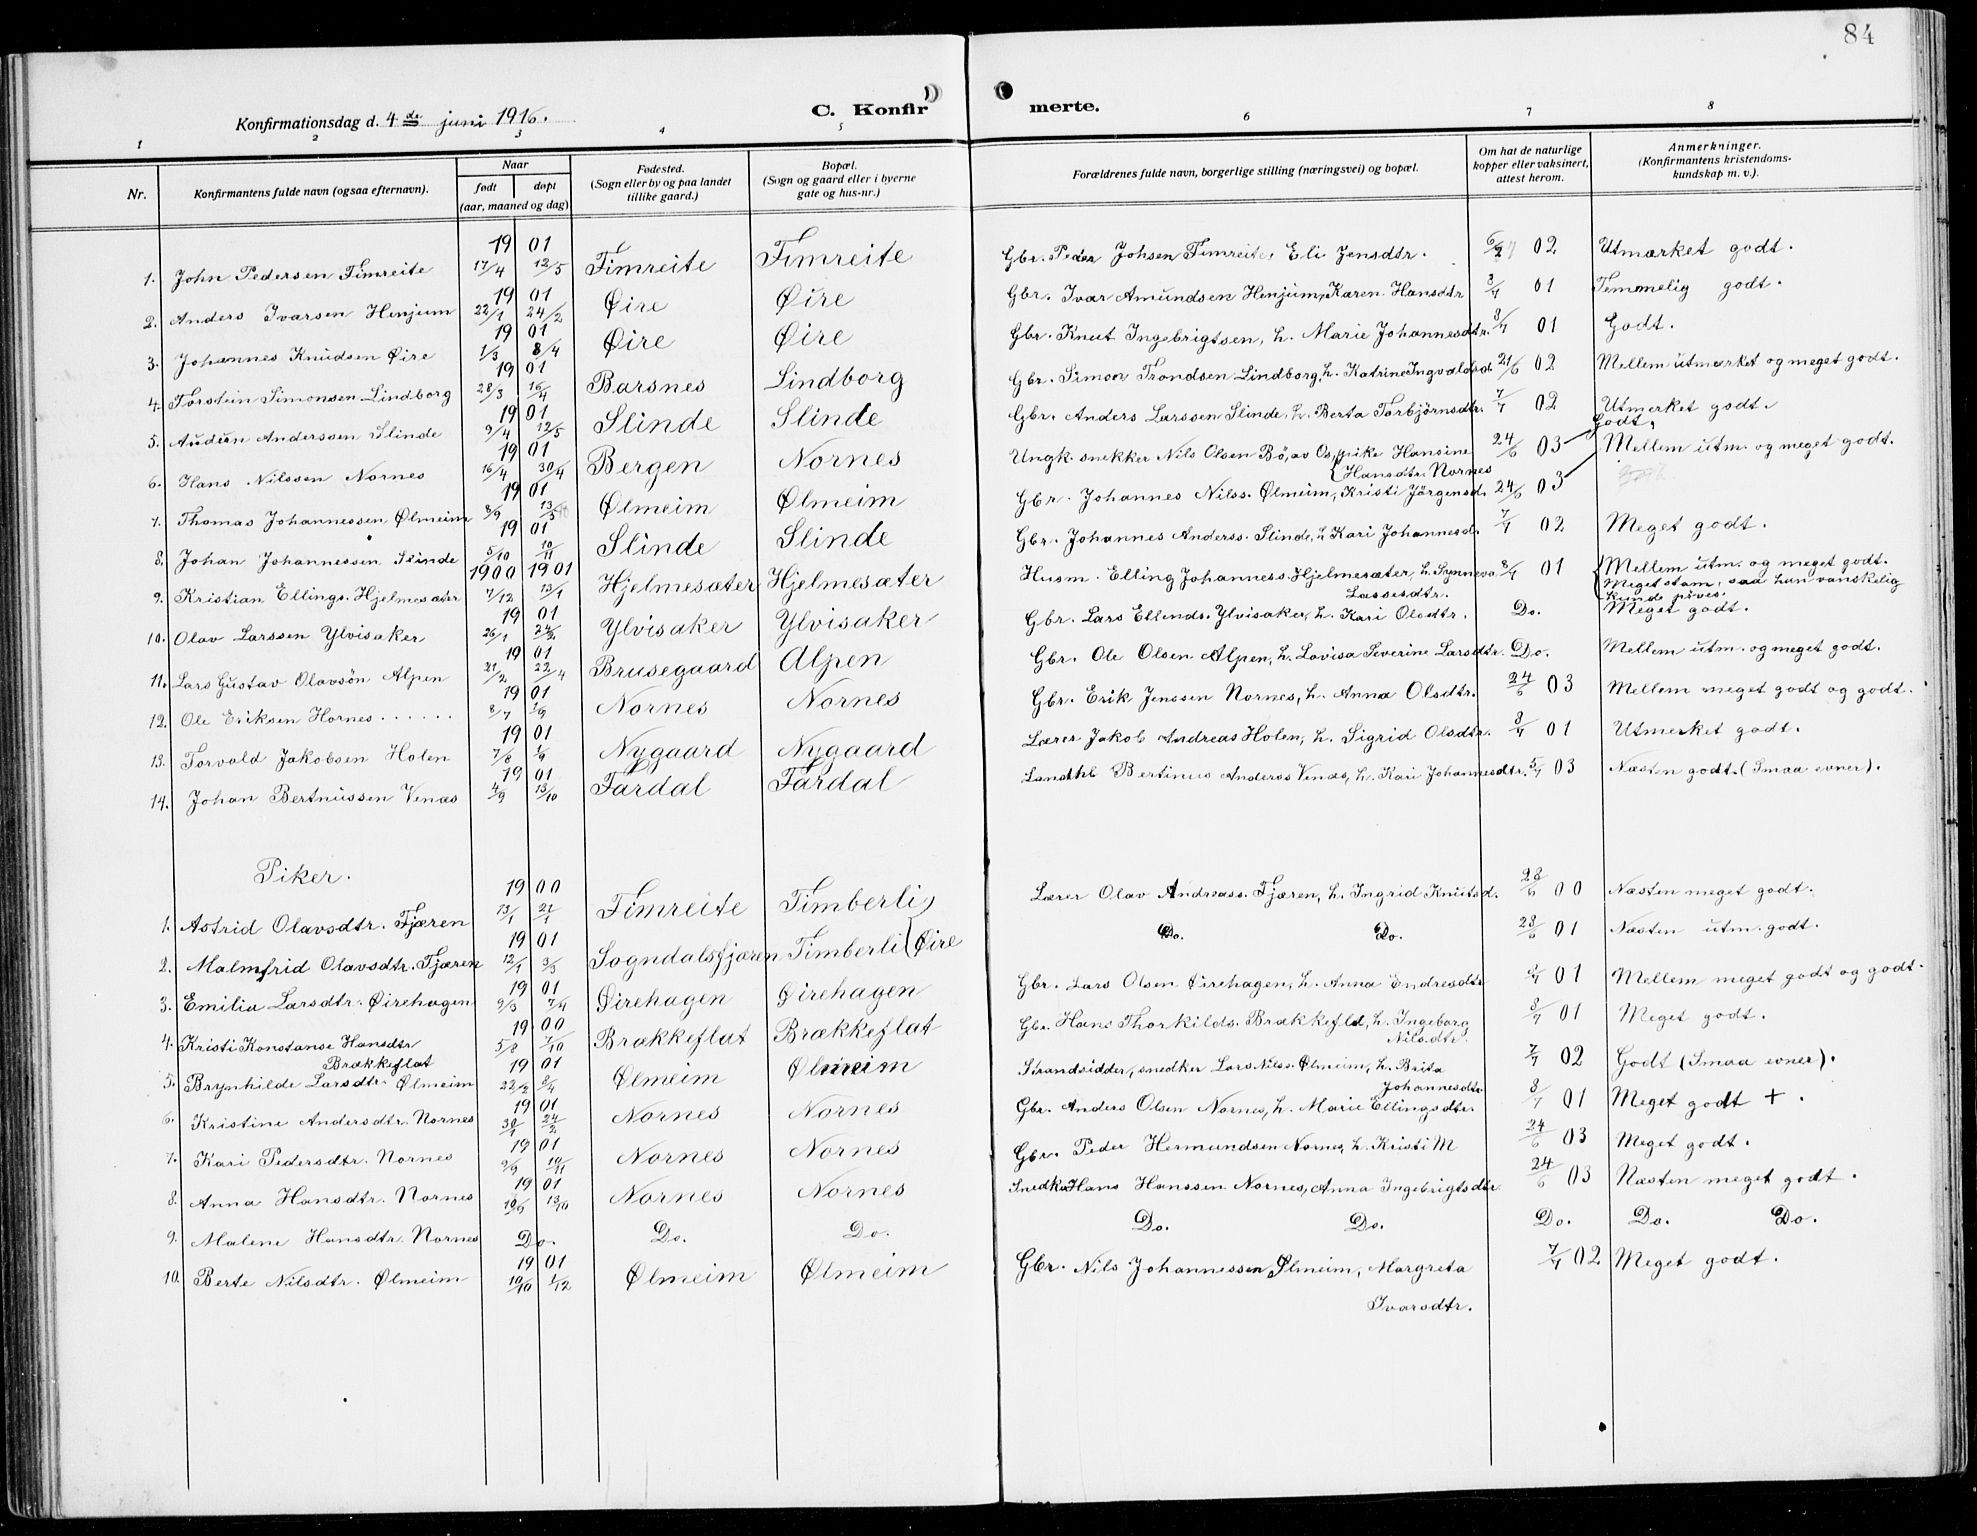 84
Konfirmationsdag d. 4de juni 1916.
C. Konfirmerte.
1 2 3 4 5 6 7 8
Nr.
Konfirmantens fulde navn (ogsaa efternavn).
Naar
født døpt
(aar, maaned og dag)
Fødested.
(Sogn eller by og paa landet
tillike gaard.)
Bopæl.
(Sogn og gaard eller i byerne
gate og hus-nr.)
Forældrenes fulde navn, borgerlige stilling (næringsvei) og bopæl.
Om hat de naturlige
kopper eller vaksinert,
attest herom.
Anmerkninger.
(Konfirmantens kristendoms-
kundskap m. v.).
1. John Pedersen Timreite 1901 17/4 12/5 Timreite Timreite Gbr. Peder Johsen Timreite, Eli Jensdtr. 02 Utmærket godt.
2. Anders Ivarsen Henjum 1901 22/1 24/2 Øire Øire Gbr. Ivar Amundsen Henjum, Karen Hansdtr 01 Temmelig godt.
3. Johannes Knudsen Øire 1901 1/3 8/4 Øire Øire Gbr. Knut Ingebrigtsen, h. Marie Johannesdtr. 01 Godt.
4. Torstein Simonsen Lindborg 1901 28/3 16/4 Barsnes Lindborg Gbr. Simon Trondsen Lindborg, h. Katrine Ingvaldsd. 21/6 02 Mellem utmærket og meget godt.
5. Audun Anderssen Slinde 1901 9/4 12/5 Slinde Slinde Gbr. Anders Larssen Slinde, h. Berta Torbjörnsdtr. 7/7 02 Utmerket godt.
Godt.
6. Hans Nilssen Nornes 1901 16/4 30/4 Bergen Nornes Ungk. snekker Nils Olsen Bö, av Os, pike Hansine 24/6 03 Mellem utm. og meget godt.
Hansdtr. Nornes
7. Thomas Johannessen Ølmeim 1901 Ølmeim Ølmeim Gbr. Johannes Nilss. Ølmeim, Kristi Jörgensd. 24/6 03
8. Johan Johannessen Slinde 1901 5/10 10/11 Slinde Slinde Gbr. Johannes Anderss. Slinde, h Kari Johannesd. 7/7 02 Meget godt.
9. Kristian Ellings. Hjelmesæter 1900 1901 7/12 13/1 Hjelmesæter Hjelmesæter Husm. Elling Johanness. Hjelmesæter, h. Synneva 01 Mellem utm. og meget godt.
Lassesdtr. Meget stam, saa han vanskelig
kunde pöves.
10. Olav Larssen Ylvisaker 1901 26/1 24/2 Ylvisaker Ylvisaker Gbr. Lars Ellends. Ylvisaker, h. Kari Olsdtr. Do. Meget godt.
11. Lars Gustav Olavsön Alpen 1901 21/2 22/4 Brusegaard Alpen Gbr. Ole Olsen Alpen, h. Lovisa Severine Larsdtr. Do. Mellem utm. og meget godt.
12. Ole Eriksen Hornes...... 1901 8/7 1/9 Nornes Nornes Gbr. Erik Jenssen Nornes, h. Anna Olsdtr. 24/6 03 Mellem meget godt og godt.
13. Torvald Jakobsen Holen 1901 7/8 1/9 Nygaard Nygaard Lærer Jakob Andreas Holen, h. Sigrid Olsdtr. 01 Utmerket godt.
14. Johan Bertnussen Venæs 1901 4/9 13/10 Fardal Fardal Landhl Bertinus Anderss Venæs, h. Kari Johannesdtr. 03 Næsten godt. (Smaa evner).
Piker.
1. Astrid Olavsdtr. Fjæren 1900 13/1 21/1 Timreite Timberli Lærer Olav Andreass. Fjæren, h. Ingrid Knutsd. 28/6 00 Næsten meget godt.
2. Malmfrid Olavsdtr. Fjæren 1901 12/1 3/3 Sogndalsfjæren Timberli (Øire Do. Do. 28/6 01 Næsten utm. godt.
3. Emilia Larsdtr. Øirehagen 1901 9/3 7/4 Øirehagen Øirehagen Gbr. Lars Olsen Øirehagen, h. Anna Endresdtr 01 Mellem meget godt og godt.
4. Kristi Konstanse Hansdtr 1900 5/8 7/10 Brækkeflat Brækkeflat Gbr. Hans Thorkilds. Brækkefld, h. Ingeborg 01 Meget godt.
Brækkeflat Nilsdtr.
5. Brynhilde Larsdtr. Ølmeim 1901 22/2 8/4 Ølmeim Ølmeim Strandsidder, snedker Lars Nilss. Ølmeim, h. Brita 7/7 02 Godt (Smaa evner).
Johannesdtr
6. Kristine Andersdtr. Nornes 1901 30/1 24/2 Nornes Nornes Gbr. Anders Olsen Nornes, h. Marie Ellingsdtr 01 Meget godt +.
7. Kari Pedersdtr. Nornes 1901 9/9 10/11 Nornes Nornes Gbr. Peder Hermundsen Nornes, h. Kristi M 24/6 03 Meget godt.
8. Anna Hansdtr. Nornes 1901 13/10 Nornes Nornes Snedker Hans Hanssen Nornes, Anna Ingebrigtsdtr. 24/6 03 Næsten meget godt.
9. Malene Hansdtr. Nornes Do. Do. Do. Do. Do. Do. Do. Do.
10. Berte Nilsdtr. Ølmeim 1901 10/10 1/12 Ølmeim Ølmeim Gbr. Nils Johannessen Ølmeim, Margreta 7/7 02 Meget godt.
Ivarsdtr.